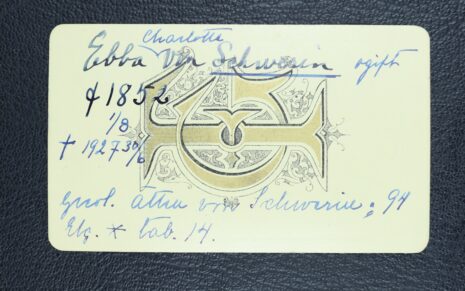 Charlotte
Ebba von Schwerin ogift
* 1852
1/8
† 1927 30/6
Grenl. ätten von Schwerin: 94
Elg. * tab. 14.